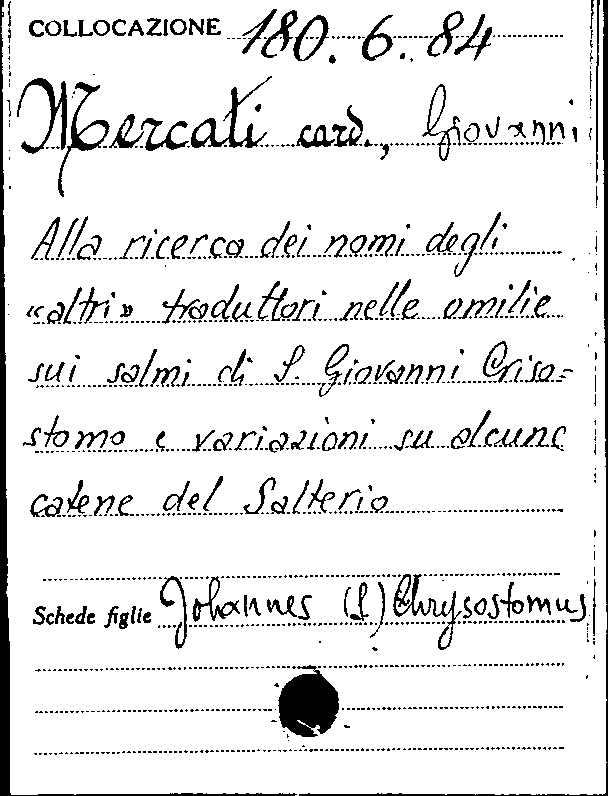 COLLOCAZIONE 180. 6. 84
Mercati card., Giovanni
Alla ricerca dei nomi degli
«altri» traduttori nelle omilie
sui salmi di S. Giovanni Criso=
stomo e variazioni su alcune
catene del Salterio
Schede figlie Johannes (S.) Chrysostomus